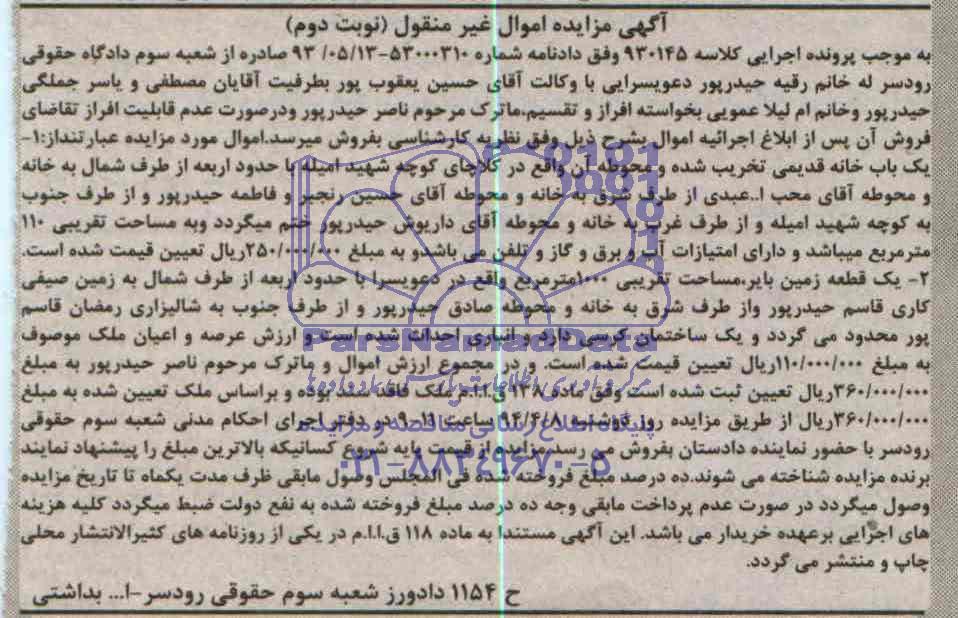 آگهی مزایده اموال غیر منقول (نوبت دوم)
به موجب پرونده اجرایی کلاسه ۹۳۰۱۴۵ وفق دادنامه شماره ۵۳۰۰۰۳۱۰-۹۳/۰۵/۱۳ صادره از شعبه سوم دادگاه حقوقی
رودسر له خانم رقیه حیدرپور دعویسرایی با وکالت آقای حسین یعقوب پور بطرفیت آقایان مصطفی و یاسر جملگی
حیدرپور وخانم ام لیلا عمویی بخواسته افراز و تقسیم،ماترک مرحوم ناصر حیدرپور ودرصورت عدم قابلیت افراز تقاضای
فروش آن پس از ابلاغ اجرائیه اموال بشرح ذیل وفق نظریه کارشناسی بفروش میرسد.اموال مورد مزایده عبارتنداز:۱-
یک باب خانه قدیمی تخریب شده و محوطه آن واقع در کلاچای کوچه شهید امیله با حدود اربعه از طرف شمال به خانه
و محوطه آقای محب ا..عبدی از طرف شرق به خانه و محوطه آقای حسین رنجبر و فاطمه حیدرپور و از طرف جنوب
به کوچه شهید امیله و از طرف غرب به خانه و محوطه آقای داریوش حیدرپور ختم میگردد وبه مساحت تقریبی ۱۱۰
مترمربع میباشد و دارای امتیازات آب و برق و گاز و تلفن می باشدو به مبلغ ۲۵۰/۰۰۰/۰۰۰ریال تعیین قیمت شده است.
۲- یک قطعه زمین بایر،مساحت تقریبی ۱۰۰۰مترمربع واقع در دعویسرا با حدود اربعه از طرف شمال به زمین صیفی
کاری قاسم حیدرپور واز طرف شرق به خانه و محوطه صادق حیدرپور و از طرف جنوب به شالیزاری رمضان قاسم
پور محدود می گردد و یک ساختمان کرسی دارد و انباری احداث شده است و ارزش عرصه و اعیان ملک موصوف
به مبلغ ۱۱۰/۰۰۰/۰۰۰ریال تعیین قیمت شده است. و در مجموع ارزش اموال و ماترک مرحوم ناصر حیدرپور به مبلغ
۳۶۰/۰۰۰/۰۰۰ریال تعیین ثبت شده است وفق ماده ۱۳۸ ق.ا.ا.م ملک فاقد سند بوده و براساس ملک تعیین شده به مبلغ
۳۶۰/۰۰۰/۰۰۰ریال از طریق مزایده روز دوشنبه ۹۴/۴/۸ ساعت ۱۱-۹ در دفتر اجرای احکام مدنی شعبه سوم حقوقی
رودسر با حضور نماینده دادستان بفروش می رسد.مزایده از قیمت پایه شروع کسانیکه بالاترین مبلغ را پیشنهاد نمایند
برنده مزایده شناخته می شوند.ده درصد مبلغ فروخته شده فی المجلس وصول مابقی ظرف مدت یکماه تا تاریخ مزایده
وصول میگردد در صورت عدم پرداخت مابقی وجه ده درصد مبلغ فروخته شده به نفع دولت ضبط میگردد کلیه هزینه
های اجرایی برعهده خریدار می باشد. این آگهی مستندا به ماده ۱۱۸ ق.ا.ا.م در یکی از روزنامه های کثیرالانتشار محلی
چاپ و منتشر می گردد.
ح ۱۱۵۴ دادورز شعبه سوم حقوقی رودسر-ا... بداشتی
ParsNamadData
پایگاه اطلاع رسانی مناقصه و مزایده
۰۲۱-۸۸۳۴۹۶۷۰-۵